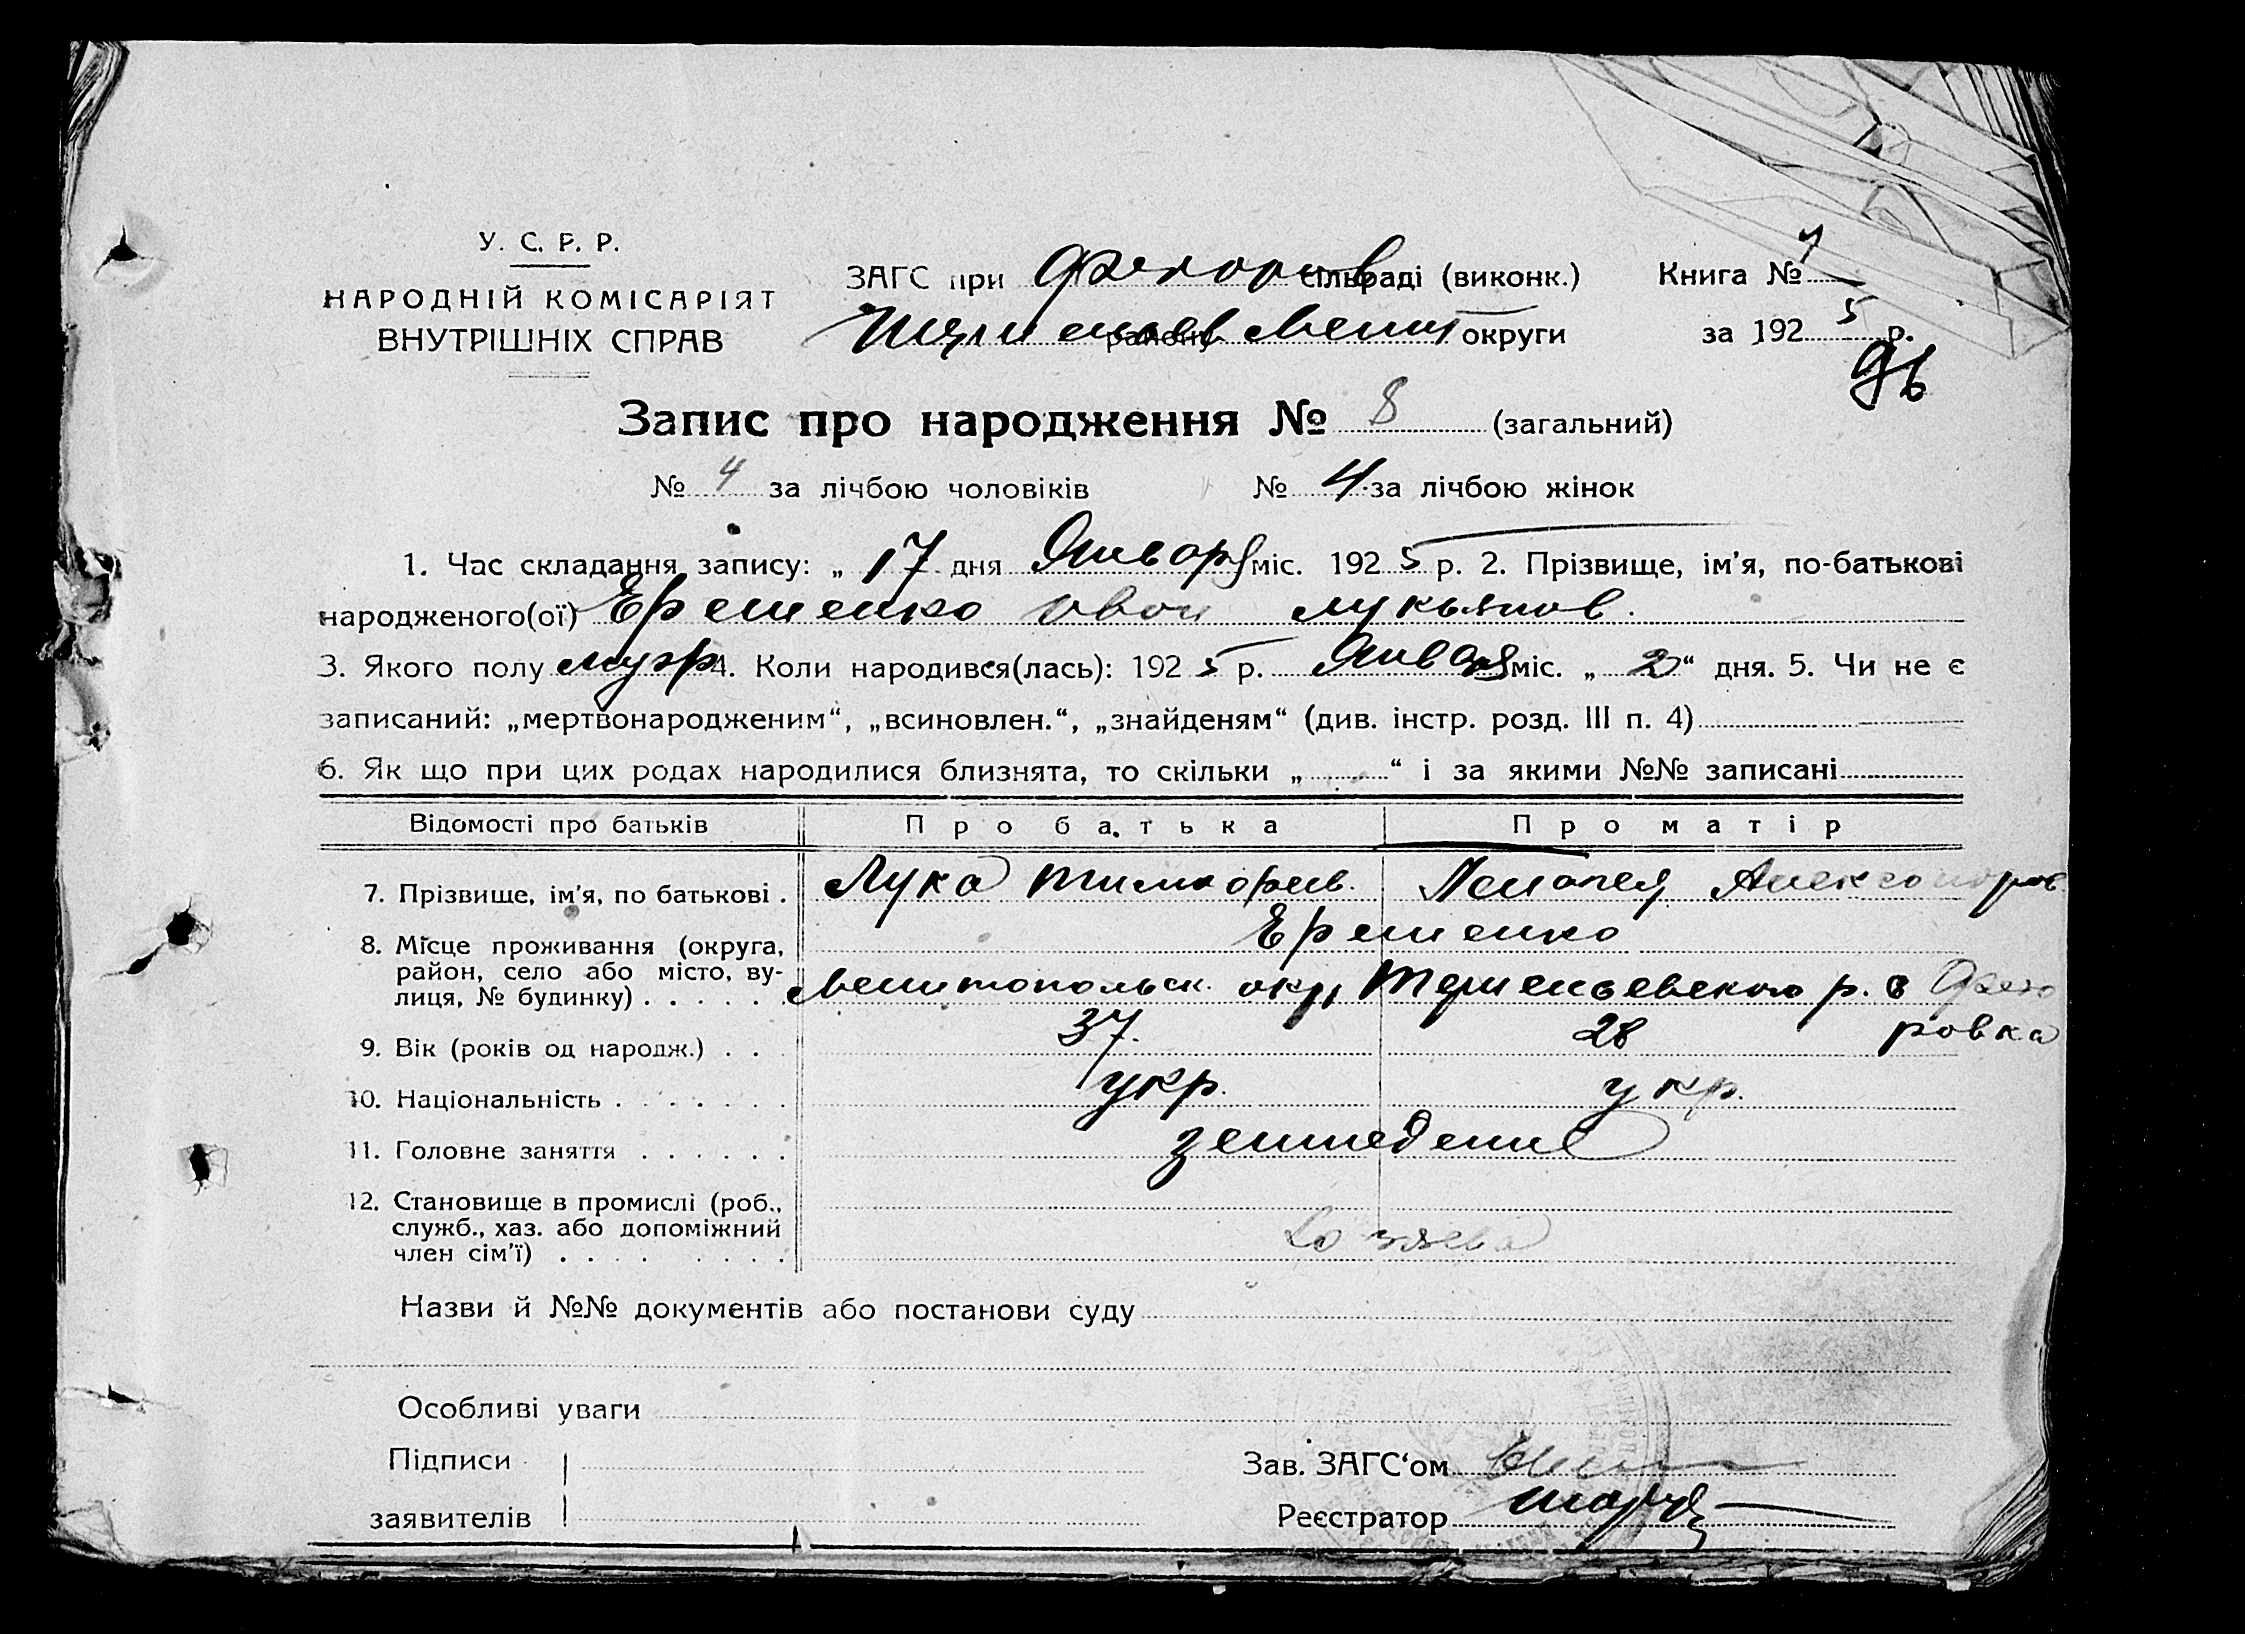 У. С. Р. Р.
НАРОДНІЙ КОМІСАРІЯТ
ВНУТРІШНІХ СПРАВ
ЗАГС при Федоров сільраді (виконк.)
Книга №
районы Мелит округи
за 192 5 р.
96
Запис про народження № 8 (загальний)
№ 4 за лічбою чоловіків № 4 за лічбою жінок
1. Час складання запису: „ 17 дня Января міс. 192 5 р. 2. Прізвище, ім'я, по-батькові
народженого(ої) Еременко Иван Лукьянов.
3. Якого полу муж 4. Коли народився(лась): 192 5 р. Января міс. „ 2 “ дня. 5. Чи не є
записаний: „мертвонародженим“, „всиновлен.“, „знайденям“ (див. інстр. розд. III п. 4)
6. Як що при цих родах народилися близнята, то скільки „ “ і за якими №№ записані
Відомості про батьків Про батька Про матір
7. Прізвище, ім'я, по батькові . Лука Тимофеев. Пелагея Александров
Еременко
8. Місце проживання (округа,
район, село або місто, ву-
лиця, № будинку) . . . . . . Мелитопольск. окр, р. с Федо
ровка
9. Вік (років од народж.) . . 37. 28
10. Національність . . . . . . . укр. укр.
11. Головне заняття . . . . . . земледелие
12. Становище в промислі (роб.,
служб., хаз. або допоміжний
член сім'ї) . . . . . . . . хозяева
Назви й №№ документів або постанови суду
Особливі уваги
Підписи
заявителів
Зав. ЗАГС‘ом
Реєстратор